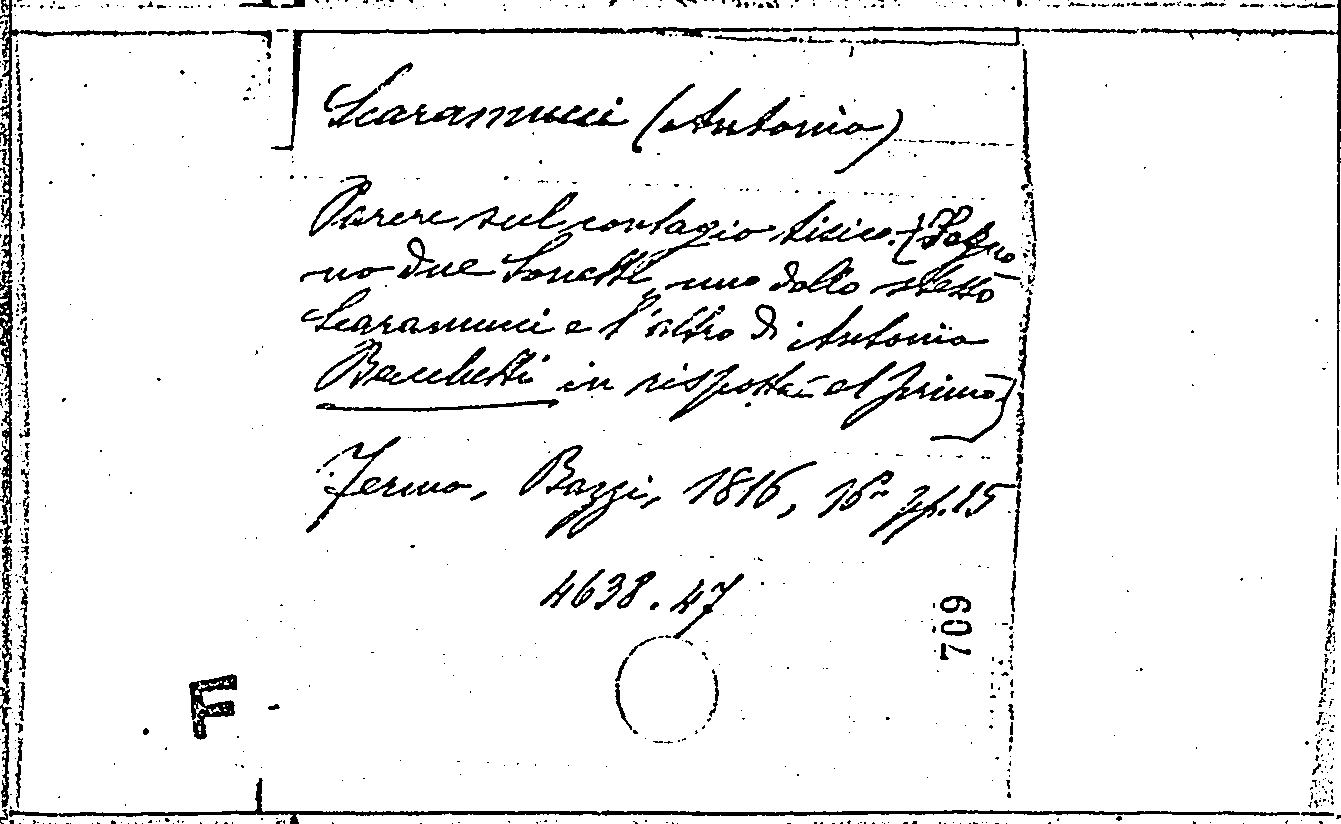 Scaramucci (Antonio)
Parere sul contagio tisico. (Segno-
no due Sonetti, uno dello stesso
Scaramucci e l'altro di Antonio
Bacchetti in risposta al primo)
Fermo, Bazzi, 1816, 16º pp. 15
4638.47
709
F